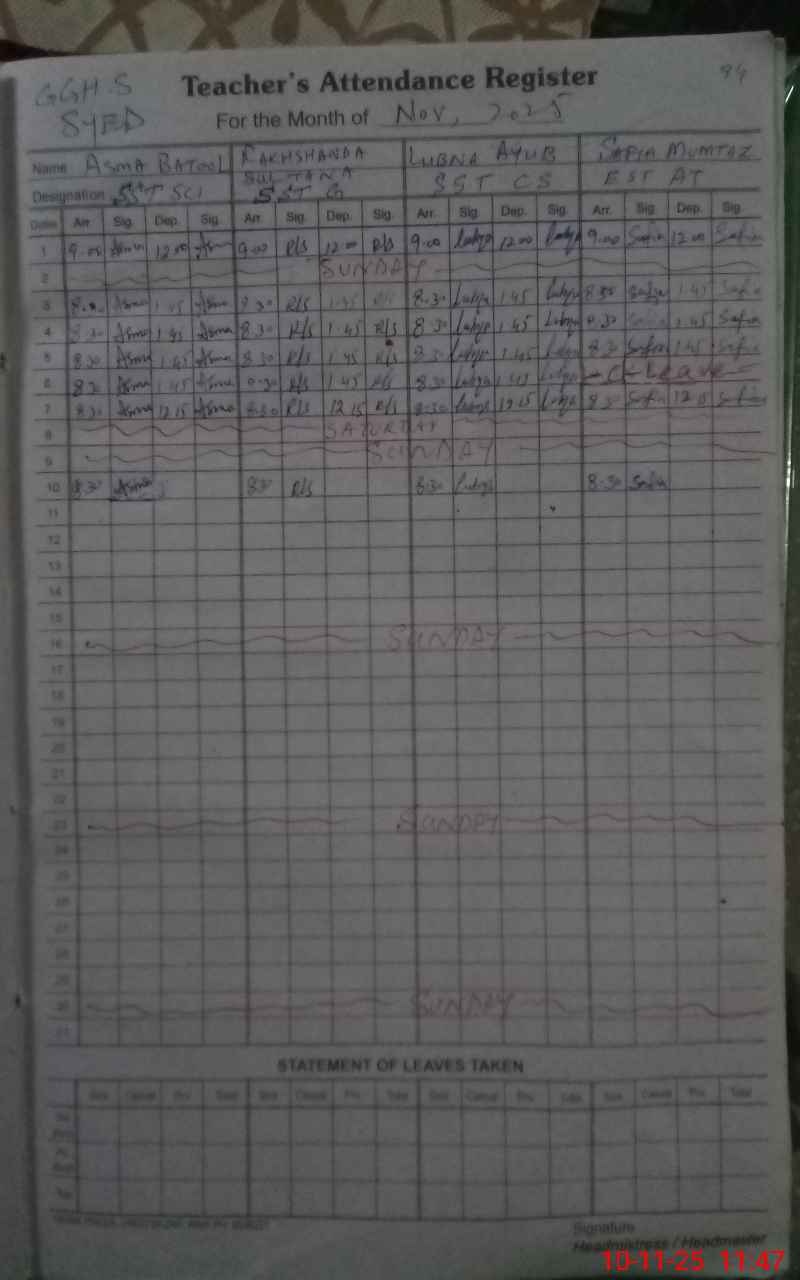 GGH.S
SYED
94
Teacher's Attendance Register
For the Month of Nov, 2025
Name ASMA BATOOL RAKHSHANDA SULTANA LUBNA AYUB SAFIA MUMTAZ
Designation SST SCI SST G SST CS EST AT
Dates Arr. Sig. Dep. Sig. Arr. Sig. Dep. Sig. Arr. Sig. Dep. Sig. Arr. Sig. Dep. Sig.
1 9.00 Asma 12.00 Asma 9.00 R/S 12.00 R/S 9.00 Lubna 12.00 Lubna 9.00 Safia 12.00 Safia
2 SUNDAY
3 Asma 1.45 Asma 8.30 R/S 1.45 R/S 8.30 Lubna 1.45 Lubna 8.30 Safia 1.45 Safia
4 8.30 Asma 1.45 Asma 8.30 R/S 1.45 R/S 8.30 Lubna 1.45 Lubna 8.30 Safia 1.45 Safia
5 8.30 Asma 1.45 Asma 8.30 R/S 1.45 R/S 8.30 Lubna 1.45 Lubna 8.30 Safia 1.45 Safia
6 8.30 Asma 1.45 Asma 8.30 R/S 1.45 R/S 8.30 Lubna 1.45 Lubna - C - Leave -
7 8.30 Asma 12.15 Asma 8.30 R/S 12.15 R/S 8.30 Lubna 12.15 Lubna 8.30 Safia 12.15 Safia
8 SATURDAY
9 SUNDAY
10 8.30 Asma 8.30 R/S 8.30 Lubna 8.30 Safia
11
12
13
14
15
16 SUNDAY
17
18
19
20
21
22
23 SUNDAY
24
25
26
27
28
29
30 SUNDAY
31
STATEMENT OF LEAVES TAKEN
Sick Casual Prv. Total Sick Casual Prv. Total Sick Casual Prv. Total Sick Casual Prv. Total
Signature
Headmistress / Headmaster
10-11-25 11:47